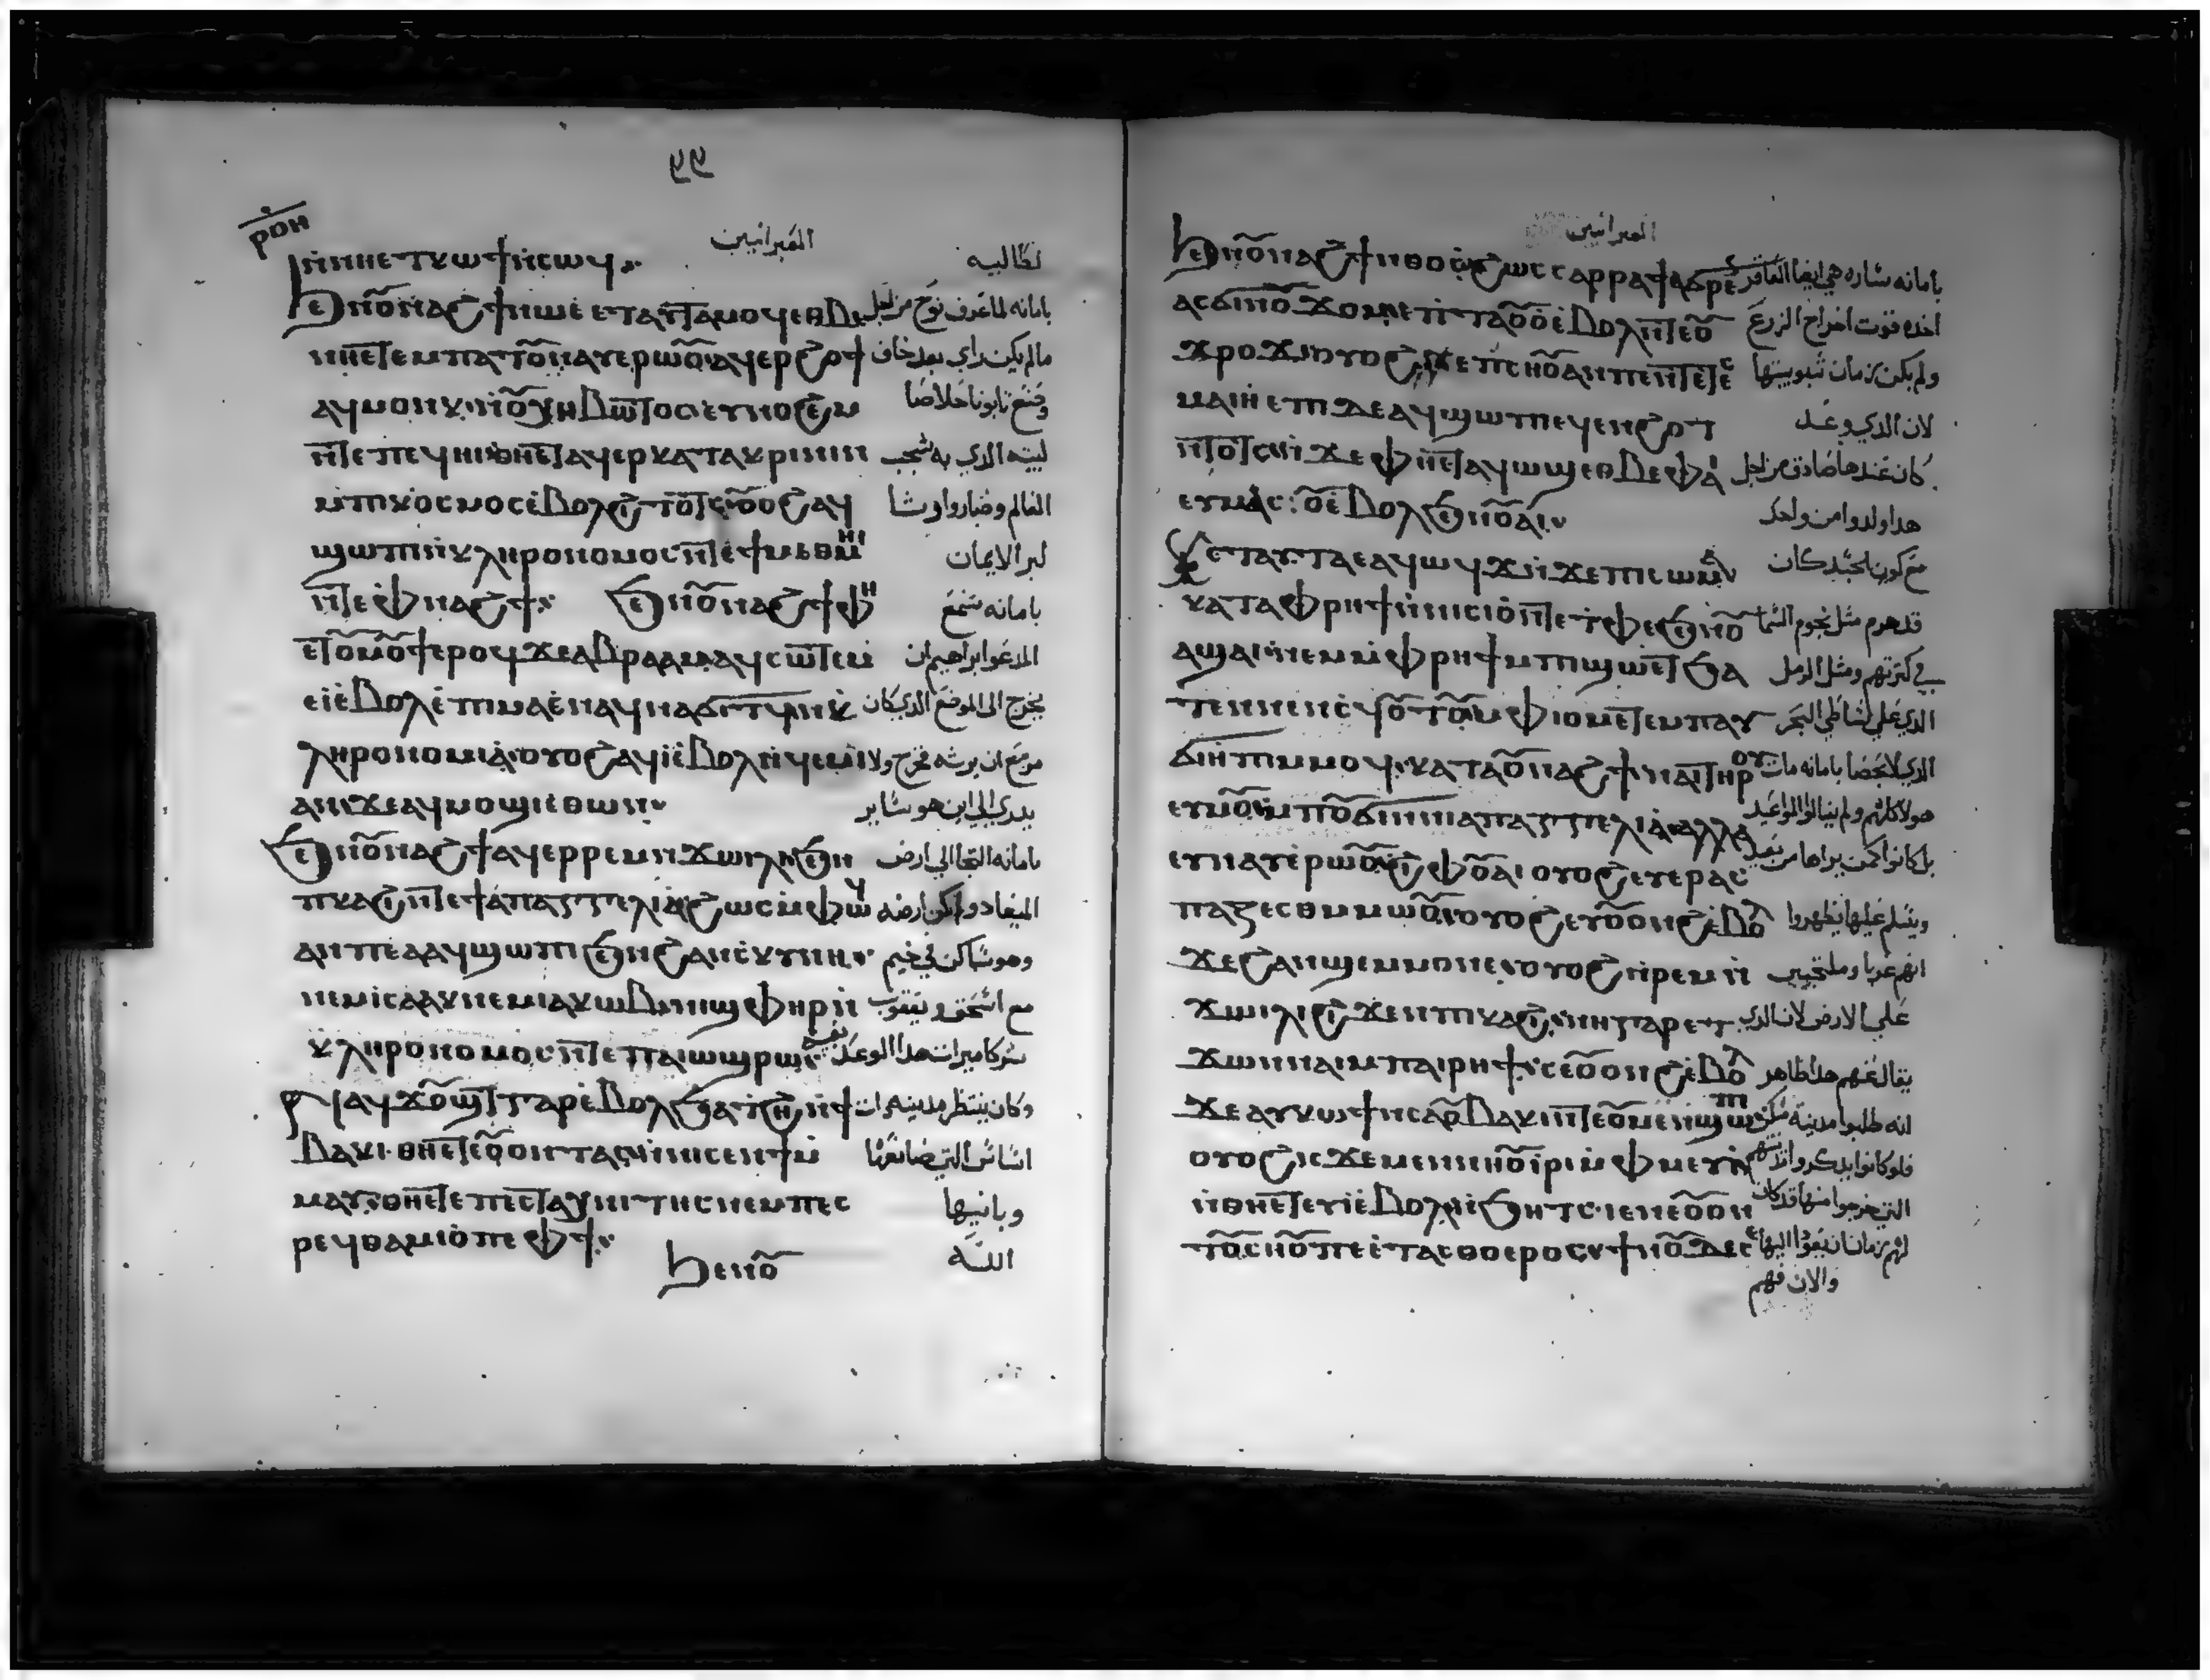 ⲣⲟⲏ
العبرانيين
ⲛ̀ⲛⲏⲉⲧⲕⲱϯ ⲛ̀ⲥⲱϥ لطالبيه
ϧⲉⲛ ⲟⲩⲛⲁϩϯ ⲛⲱⲉ̀ ⲉⲧⲁⲩⲧⲁⲙⲟϥ ⲉⲑⲃⲉ بامانه لما عرف نوح من اجل
ⲛⲏⲉⲧⲉⲙⲡⲁⲧⲟⲩⲛⲁⲩ ⲉⲣⲱⲟⲩ ⲁϥⲉⲣϩⲟϯ مالم يكن راي بعد خاف
ⲁϥⲙⲟⲩⲛⲕ ⲛ̀ⲟⲩⲕⲩⲃⲱⲧⲟⲥ ⲉⲩⲛⲟϩⲉⲙ وصنع تابوتا خلاصا
ⲛ̀ⲧⲉ ⲡⲉϥⲏⲓ ⲑⲏⲉⲧⲁϥⲉⲣⲕⲁⲧⲁⲕⲣⲓⲛⲓⲛ لبيته الدي به شجب
ⲙ̀ⲡⲓⲕⲟⲥⲙⲟⲥ ⲉ̀ⲃⲟⲗϩⲓⲧⲟⲧⲥ ⲟⲩⲟϩ ⲁϥ العالم وصار وارثا
ϣⲱⲡⲓ ⲛ̀ⲕⲗⲏⲣⲟⲛⲟⲙⲟⲥ ⲛ̀ⲧⲉ ϯⲙⲉⲑⲙⲏⲓ لبر الايمان
ⲛ̀ⲧⲉ ⲫⲛⲁϩϯ ϧⲉⲛ ⲟⲩⲛⲁϩϯ ⲫⲏ بامانه سمع
ⲉⲧⲟⲩⲙⲟⲩϯ ⲉⲣⲟϥ ϫⲉ ⲁⲃⲣⲁⲁⲙ ⲁϥⲥⲱⲧⲉⲙ المدعوا ابراهيم ان
ⲉⲓ̀ ⲉ̀ⲃⲟⲗ ⲉ̀ⲡⲓⲙⲁ ⲉ̀ⲛⲁϥⲛⲁϭⲓⲧϥ ⲛ̀ⲕ يخرج الى الموضع الدي كان
ⲗⲏⲣⲟⲛⲟⲙⲓⲁ ⲟⲩⲟϩ ⲁϥⲓ̀ ⲉ̀ⲃⲟⲗ ⲛ̀ϥⲉⲙⲓ مزمع ان يرثه فخرج ولا
ⲁⲛ ϫⲉ ⲁϥⲙⲟϣⲓ ⲉ̀ⲑⲱⲛ يدري الي اين هو ساير
ϧⲉⲛ ⲟⲩⲛⲁϩϯ ⲁϥⲉⲣⲣⲉⲙⲛ̀ϫⲱⲓⲗⲓ ϧⲉⲛ بامانه التجا الي ارض
ⲡⲕⲁϩⲓ ⲛ̀ⲧⲉ ϯⲉⲡⲁⲅⲅⲉⲗⲓⲁ ϩⲱⲥ ⲙ̀ⲫⲱϥ الميعاد ولم تكن ارضه
ⲁⲛ ⲡⲉ ⲉⲁϥϣⲱⲡⲓ ϧⲉⲛ ϩⲁⲛⲥ̀ⲕⲩⲛⲏ وهو ساكن في خيم
ⲛⲉⲙ ⲓⲥⲁⲁⲕ ⲛⲉⲙ ⲓⲁⲕⲱⲃ ⲛⲓϣⲫⲏⲣ ⲛ̀ مع اسحق ويعقوب
ⲕⲗⲏⲣⲟⲛⲟⲙⲟⲥ ⲛ̀ⲧⲉ ⲡⲁⲓⲱϣ ⲣⲱ شركا ميراث هدا الوعد بعينه
ⲛⲁϥϫⲟⲩϣⲧ ⲅⲁⲣ ⲉ̀ⲃⲟⲗϧⲁⲧϩⲏ ⲛ̀ϯ وكان ينتظر مدينه دات
ⲃⲁⲕⲓ ⲑⲏⲉⲧⲉⲟⲩⲟⲛⲧⲁⲥ ⲛ̀ⲛⲓⲥⲉⲛϯ ⲙ̀ اساس التي صانعها
ⲙⲁⲩ ⲑⲏⲉⲧⲉ ⲡⲉⲥⲧⲉⲭⲛⲓⲧⲏⲥ ⲛⲉⲙ ⲡⲉⲥ وبانيها
ⲣⲉϥⲑⲁⲙⲓⲟ̀ ⲡⲉ ⲫϯ الله
ϧⲉⲛ ⲟⲩ
العبرانيين
ϧⲉⲛ ⲟⲩⲛⲁϩϯ ⲛⲑⲟⲥ ϩⲱⲥ ⲥⲁⲣⲣⲁ ϯⲁϭⲣⲏ بامانه ساره هي ايضا العاقر
ⲁⲥϭⲓ ⲛ̀ⲟⲩϫⲟⲙ ⲉⲡⲧⲁⲟⲩⲟ̀ ⲉ̀ⲃⲟⲗ ⲛ̀ⲧⲉ ⲟⲩ اخده قوت اخراج الزرع
ϫⲣⲟϫ ⲟⲩⲟϩ ⲡⲥⲏⲟⲩ ⲁⲛ ⲡⲉ ⲛ̀ⲧⲉ ولم يكن زمان شبوبيتها
ⲙⲁⲓⲏ ⲉⲡⲓⲇⲉ ⲁϥϣⲱⲡ ⲉϥⲉⲛϩⲟⲧ لان الدي وعد
ⲛ̀ⲧⲟⲧⲥ ⲛ̀ϫⲉ ⲫⲏⲉⲧⲁϥⲱϣ ⲉⲑⲃⲉ ⲫⲁⲓ كان عندها صادق من اجل
ⲉⲩⲙⲁⲥⲟⲩ ⲉ̀ⲃⲟⲗϧⲉⲛ ⲟⲩⲁⲓ هدا ولدوا من واحد
ⲕⲉⲧⲁⲩⲧⲁ ⲉⲁϥⲱϥ ⲛ̀ϫⲉ ⲡⲉϥⲥⲱⲙⲁ مع كون الجسد كان
ⲕⲁⲧⲁ ⲫⲣⲏϯ ⲛ̀ⲛⲓⲥⲓⲟⲩ ⲛ̀ⲧⲉ ⲧⲫⲉ ϧⲉⲛ ⲟⲩ قد هرم مثل نجوم السما
ⲁϣⲁⲓ ⲛⲉⲙ ⲙ̀ⲫⲣⲏϯ ⲙ̀ⲡⲓϣⲱ ⲉⲧϧⲁ في كثرتهم ومثل الرمل
ⲧⲉⲛ ⲛⲉⲛⲥ̀ⲫⲟⲧⲟⲩ ⲙ̀ⲫⲓⲟⲙ ⲉⲧⲉ ⲙⲡⲁⲩ الدي علي شاطي البحر
ϭⲓⲏⲡⲓ ⲙ̀ⲙⲟϥ ⲕⲁⲧⲁ ⲟⲩⲛⲁϩϯ ⲛⲁⲓ ⲧⲏⲣⲟⲩ الدي لا يحصا بامانه مات
ⲉⲩⲙⲟⲩ ⲙⲡⲟⲩϭⲓ ⲛ̀ⲛⲓⲉⲡⲁⲅⲅⲉⲗⲓⲁ ⲁⲗⲗⲁ هولا كلهم ولم ينالوا المواعيد
ⲉⲩⲛⲁⲩ ⲉ̀ⲣⲱⲟⲩ ϩⲓ ⲫⲟⲩⲉⲓ ⲟⲩⲟϩ ⲉⲩⲉⲣⲁⲥ بل كانوا كمن يراها من بعيد
ⲡⲁⲍⲉⲥⲑⲉ ⲙ̀ⲙⲱⲟⲩ ⲟⲩⲟϩ ⲉⲩⲟⲩⲟⲛϩ ⲉ̀ⲃⲟⲗ ويسلم عليها يظهروا
ϫⲉ ϩⲁⲛϣⲉⲙⲙⲟ ⲛⲉ ⲟⲩⲟϩ ⲛ̀ⲣⲉⲙⲛ̀ انهم غربا وملتجيين
ϫⲱⲓⲗⲓ ϩⲓϫⲉⲛ ⲡⲕⲁϩⲓ ⲛⲏ ⲅⲁⲣ ⲉⲧ علي الارض لان الدي
ϫⲱ ⲛ̀ⲛⲁⲓ ⲙⲡⲁⲓⲣⲏϯ ⲥⲉⲟⲩⲟⲛϩ ⲉ̀ⲃⲟⲗ يقال عنهم هدا ظاهر
ϫⲉ ⲁⲩⲕⲱϯ ⲛ̀ⲥⲁ ⲟⲩⲃⲁⲕⲓ ⲛ̀ⲧⲉ ⲟⲩⲙⲉⲛϣⲱⲡ انه طلبوا مدينة مسكن
ⲟⲩⲟϩ ⲓⲥϫⲉ ⲙⲉⲛ ⲛⲁⲩⲓⲣⲓ ⲙ̀ⲫⲙⲉⲩⲓ فلو كانوا يدكروا
ⲛ̀ⲑⲏⲉⲧⲉⲩⲓ̀ ⲉ̀ⲃⲟⲗⲛ̀ϧⲏⲧⲥ ⲓⲉ ⲛⲉ ⲟⲩⲟⲛ التي خرجوا منها قد كان
ⲧⲟⲩ ⲥⲏⲟⲩ ⲡⲉ ⲉ̀ⲧⲁⲥⲑⲟ ⲉⲣⲟⲥ ϯⲛⲟⲩ ⲇⲉ لهم زمان ان يعودوا اليها
والان فهم